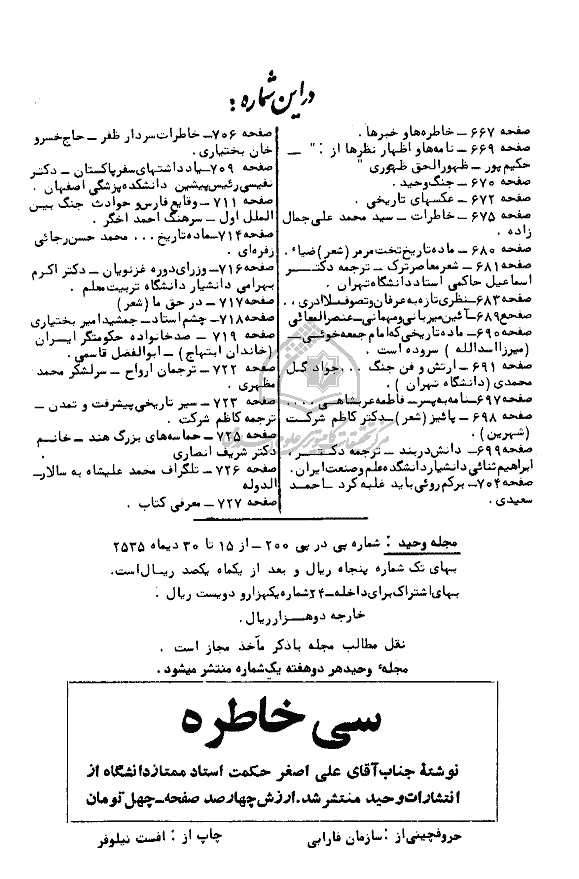 دراین شماره :
صفحه ۶۶۷ – خاطره‌ها و خبرها .
صفحه ۶۶۹ – نامه‌ها و اظهار نظرها از : " –
حکیم پور – ظهورالحق ظهوری "
صفحه ۶۷۰ – جنگ وحید .
صفحه ۶۷۲ – عکسهای تاریخی .
صفحه ۶۷۵ – خاطرات – سید محمد علی جمال
زاده .
صفحه ۶۸۰ – ماده تاریخ تخت مرمر (شعر) ضیاء .
صفحه ۶۸۱ – شعر معاصر ترک – ترجمه دکتر
اسماعیل حاکمی استاد دانشگاه تهران .
صفحه ۶۸۳ – نظری تازه به عرفان و تصوف لاادری .
صفحه ۶۸۹ – آئین میزبانی و مهمانی – عنصرالمعالی
صفحه ۶۹۰ – ماده تاریخی که امام جمعه خوئی –
(میرزا اسدالله ) سروده است .
صفحه ۶۹۱ – ارتش و فن جنگ ... جواد گل
محمدی (دانشگاه تهران ) .
صفحه ۶۹۷ – نامه به پسر – فاطمه عربشاهی ...
صفحه ۶۹۸ – پائیز (شعر) – دکتر کاظم شرکت
(شهرین ) .
صفحه ۶۹۹ – دانش در بند – ترجمه دکتر
ابراهیم ثنائی دانشیار دانشگده علم و صنعت ایران .
صفحه ۷۰۴ – بر کم روئی باید غلبه کرد – احمد
سعیدی .
صفحه ۷۰۶ – خاطرات سردار ظفر – حاج خسرو
خان بختیاری .
صفحه ۷۰۹ – یادداشتهای سفر پاکستان – دکتر
نفیسی رئیس پیشین دانشکده پزشگی اصفهان .
صفحه ۷۱۱ – وقایع فارس و حوادث جنگ بین
الملل اول – سرهنگ احمد اخگر .
صفحه ۷۱۴ – ماده تاریخ ... محمد حسن رجائی
زفره‌ای .
صفحه ۷۱۶ – وزرای دوره غزنویان – دکتر اکرم
بهرامی دانشیار دانشگاه تربیت معلم .
صفحه ۷۱۷ – در حق ما (شعر)
صفحه ۷۱۸ – چشم استاد – جمشید امیر بختیاری
صفحه ۷۱۹ – صد خانواده حکومتگر ایران
(خاندان ابتهاج ) – ابوالفضل قاسمی .
صفحه ۷۲۲ – ترجمان ارواح – سرلشگر محمد
مظهری .
صفحه ۷۲۳ – سیر تاریخی پیشرفت و تمدن –
ترجمه کاظم شرکت .
صفحه ۷۲۵ – حماسه‌های بزرگ هند – خانم
دکتر شریف انصاری .
صفحه ۷۲۶ – تلگراف محمد علیشاه به سالار–
الدوله
صفحه ۷۲۷ – معرفی کتاب .
مجله وحید : شماره پی در پی ۲۰۰ – از ۱۵ تا ۳۰ دیماه ۲۵۳۵
بهای تک شماره پنجاه ریال و بعد از یکماه یکصد ریال است.
بهای اشتراک برای داخله – ۲۴ شماره یکهزار و دویست ریال .
خارجه دو هزار ریال .
نقل مطالب مجله باذکر مآخذ مجاز است .
مجلهٔ وحید هر دو هفته یک شماره منتشر میشود .
سی خاطره
نوشتهٔ جناب آقای علی اصغر حکمت استاد ممتاز دانشگاه از
انتشارات وحید منتشر شد. ارزش چهارصد صفحه – چهل تومان
حروفچینی از : سازمان فارابی
چاپ از : افست نیلوفر